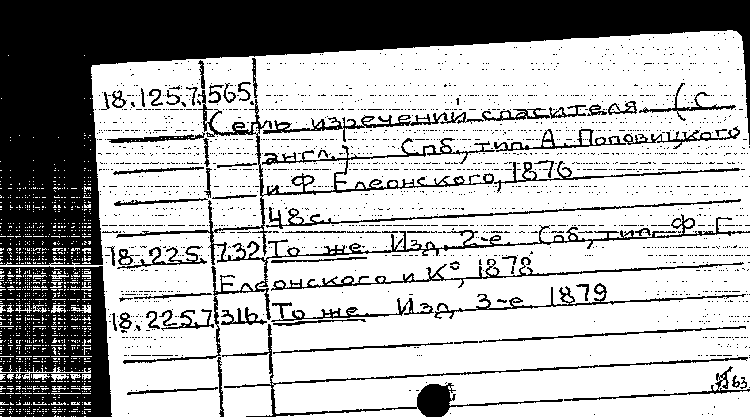 18.125.7.565.
Семь изречений спасителя. (С
англ.). Спб., тип. А. Поповицкого
и Ф. Елеонского, 1876
48 с.
18.225.7.32. То же. Изд. 2-е. Спб., тип. Ф. Г.
Елеонского и К°, 1878
18.225.7.316. То же. Изд. 3-е. 1879
63